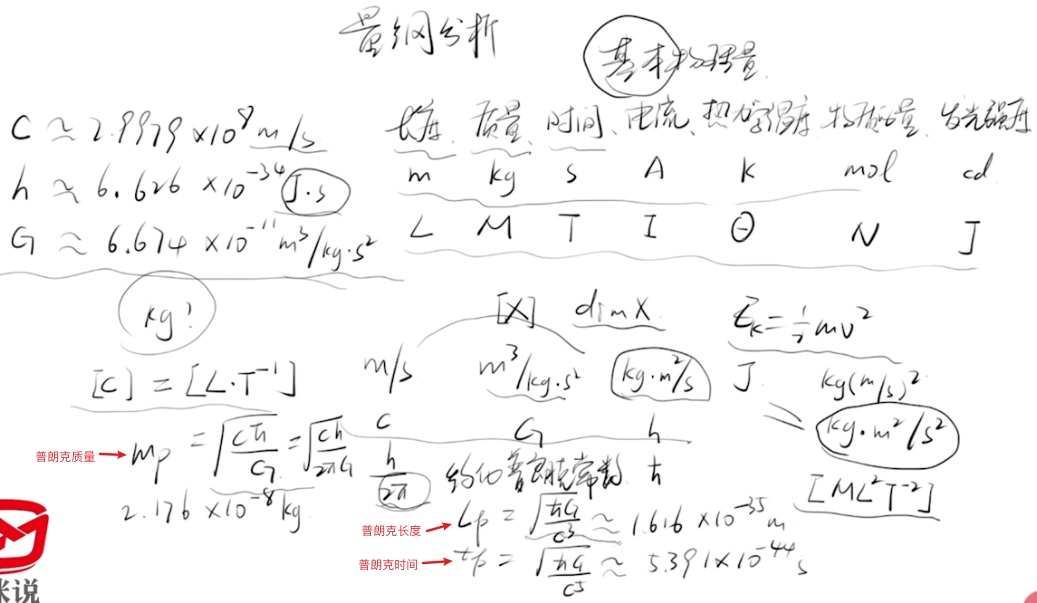 量纲分析
基本物理量
C ≈ 2.9979 ×10⁸ m/s
h ≈ 6.626 ×10⁻³⁴ J·s
G ≈ 6.674 ×10⁻¹¹ m³/kg·s²
长度、质量、时间、电流、热力学温度 物质的量、发光强度
m kg s A K mol cd
L M T I Θ N J
kg?
[X] dimX
E_K = ½mv²
[C] = [L·T⁻¹]
m/s m³/kg·s² kg·m²/s J
kg(m/s)²
kg·m²/s²
[ML²T⁻²]
C G h
普朗克质量
m_p = √(cħ/G) = √(ch/2πG)
2.176 ×10⁻⁸ kg
h/2π 约化普朗克常数 ħ
普朗克长度
L_p = √(ħG/c³) ≈ 1.616 ×10⁻³⁵ m
普朗克时间
t_p = √(ħG/c⁵) ≈ 5.391×10⁻⁴⁴ s
说